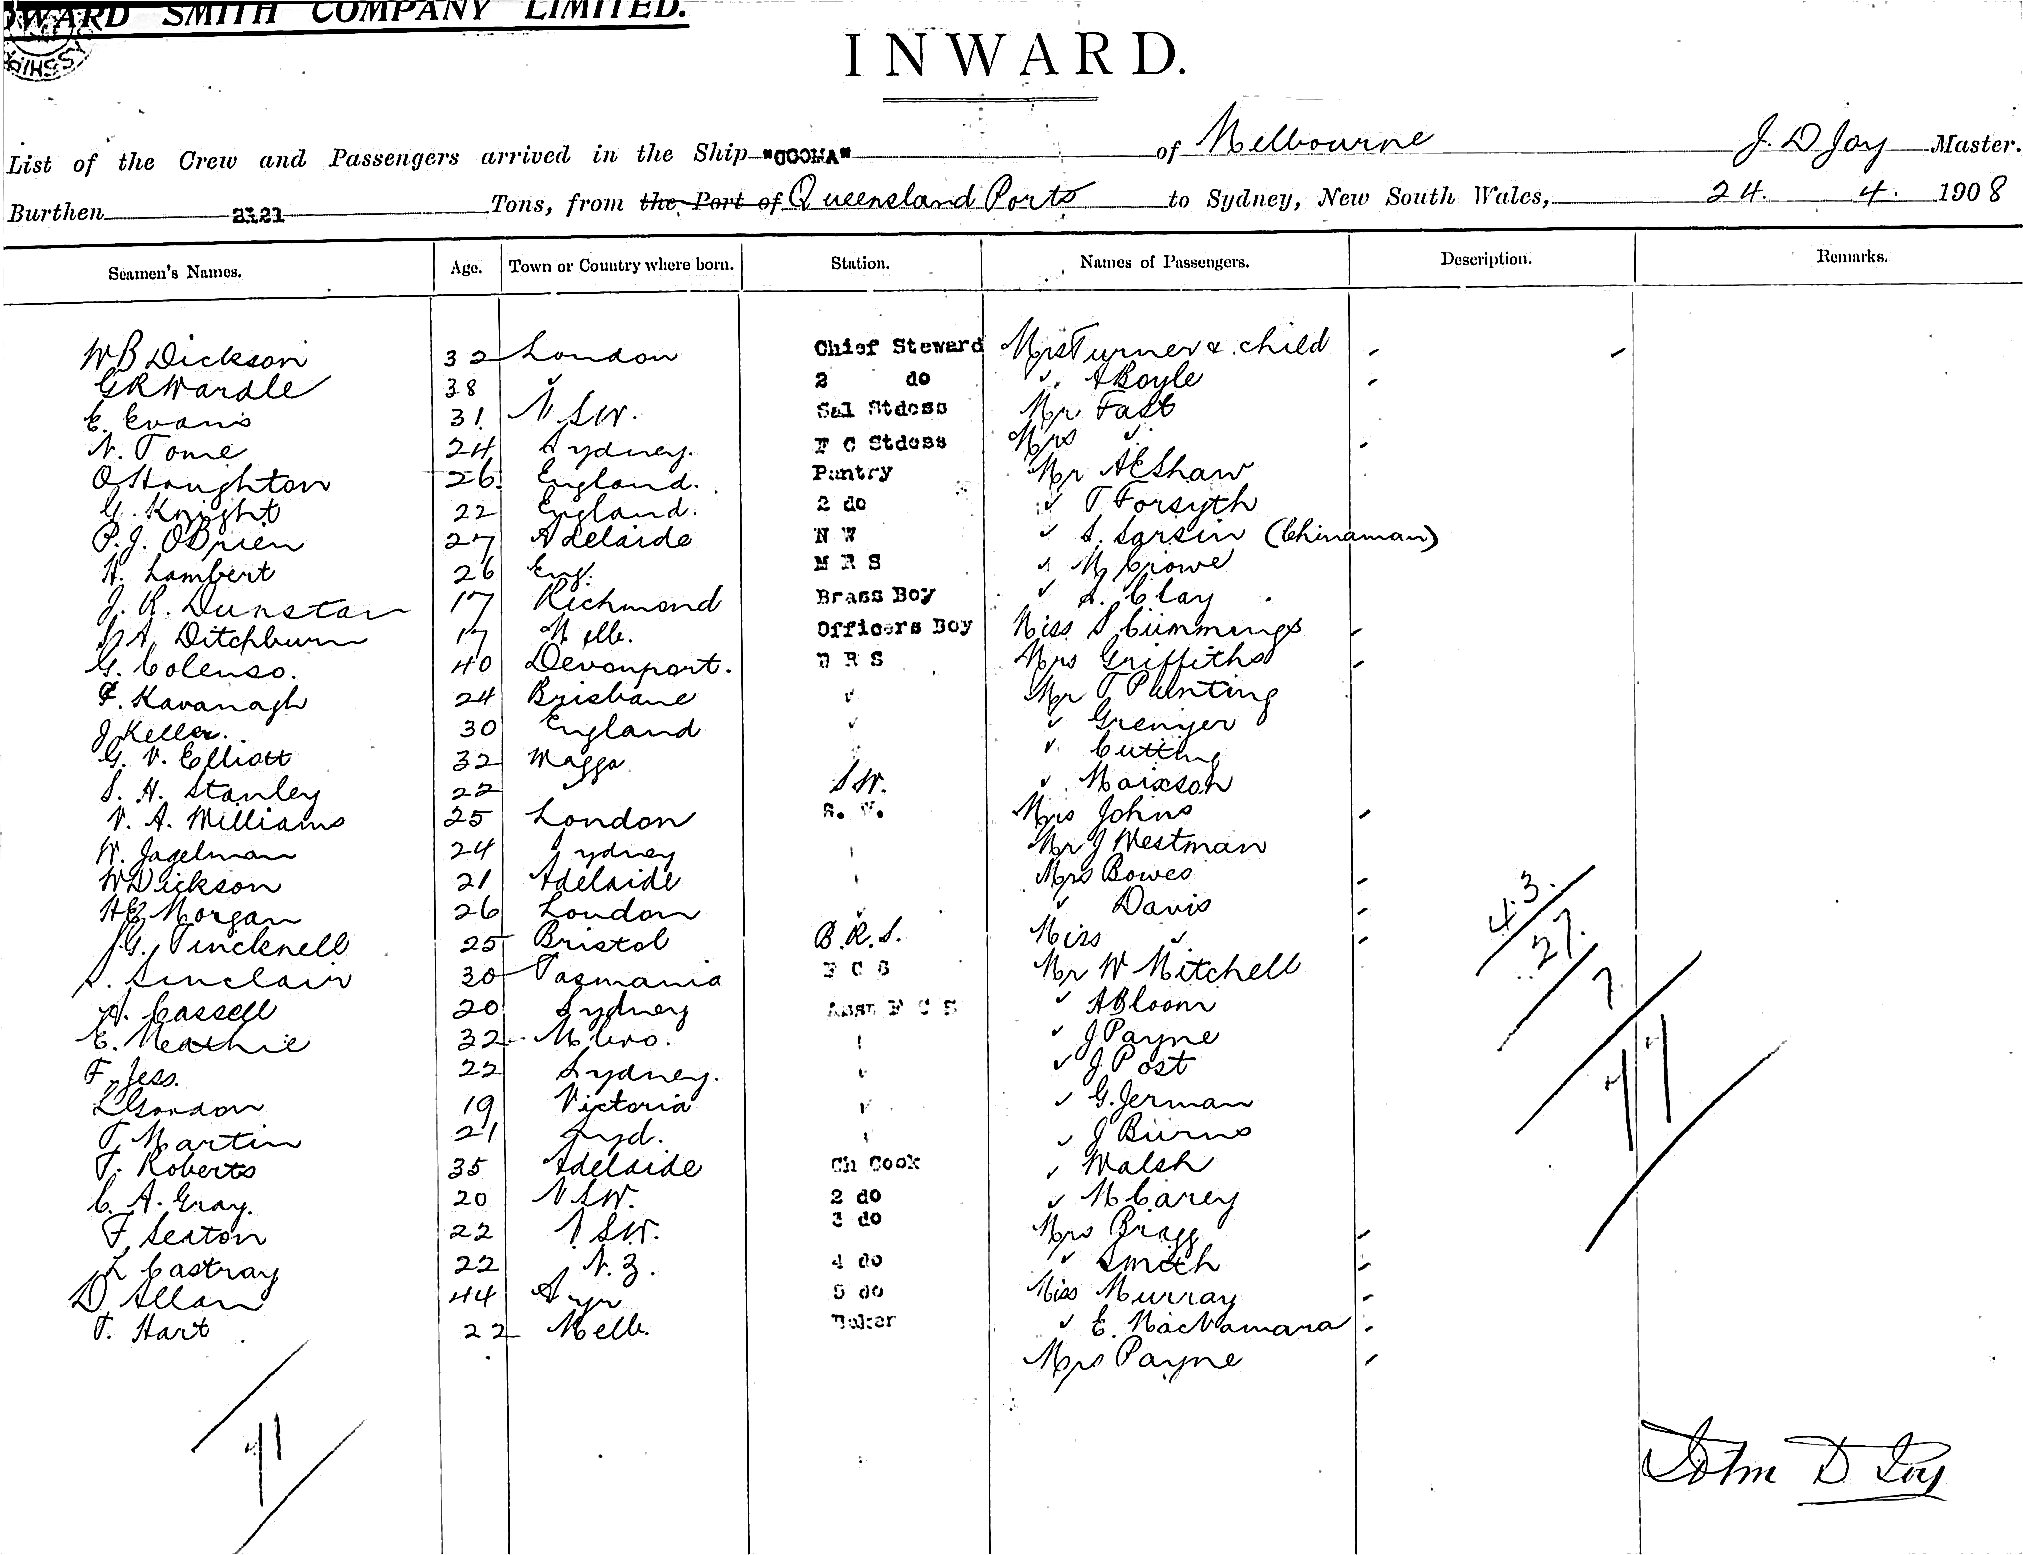 OWARD SMITH COMPANY LIMITED.
INWARD.
List of the Crew and Passengers arrived in the Ship "COOMA" of Melbourne J. D Joy Master.
Burthen 2121 Tons, from the Port of Queensland Ports to Sydney, New South Wales, 24. 4. 1908
Seamen's Names. Age. Town or Country where born. Station. Names of Passengers. Description. Remarks.
W B Dickson 32 London Chief Steward Mrs Turner & child
G R Wardle 38 " 2 do " A Boyle
E. Evans 31 N.S.W. Sal Stdess Mr Fast
N. Tome 24 Sydney. F C Stdess Mrs "
O Houghton 26 England. Pantry Mr A E Shaw
G. Knight 22 England. 2 do " T Forsyth
P. J. O'Brien 27 Adelaide N W " S. Sarsin (Chinaman)
H. Lambert 26 Eng. M R S " M Crowe
J. R. Dunstan 17 Richmond Brass Boy " A. Clay
Ditchburn 17 Melb. Officers Boy Miss S Cummings
G. Colenso. 40 Devonport. D R S Mrs Griffiths
Kavanagh 24 Brisbane " Mr T Punting
J Keller. 30 England " " Grenger
G. V. Elliott 32 Wagga " " Cutting
S. H. Stanley 22 S W. " Moixson
V. A. Williams 25 London S. W. Mrs Johns
W. Jagelman 24 Sydney " Mr J Westman
W Dickson 21 Adelaide " Mrs Bowes
H E Morgan 26 London " " Davis
J. G. Tincknell 25 Bristol B. R. S. Miss "
S. Sinclair 30 Tasmania F C S Mr W Mitchell
A. Cassell 20 Sydney Asst F C S " A Bloom
E. Meathie 32 " J Payne
F. Jess. 22 Sydney. " " J Post
L Gordon 19 Victoria " " G. Jerman
T. Martin 21 Syd. " " J Burns
T. Roberts 35 Adelaide Ch Cook " Walsh
C. A. Gray. 20 N S W. 2 do " M Carey
F Sexton 22 N S W. 3 do Mrs Bragg
L Castray 22 N. Z. 4 do " Smith
D Allan 44 Ayr 5 do Miss Murray
T. Hart 22 Melb. Baker " E. MacNamara
Mrs Payne
43.
27.
7
77
John D Joy